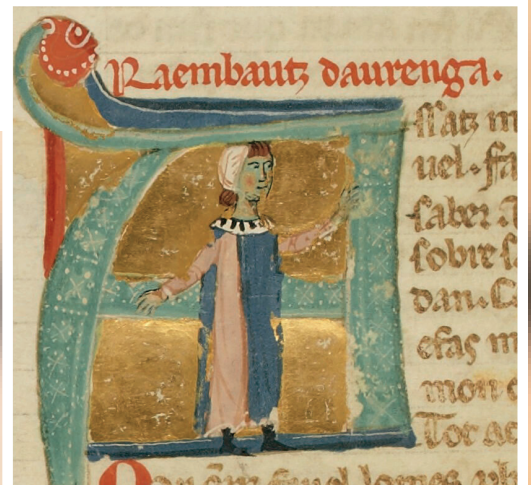 Raembautz daurenga.
ssatz m
uel. fa
saber
sobre s
dan. Ca
efas m
mon c
Tot ac